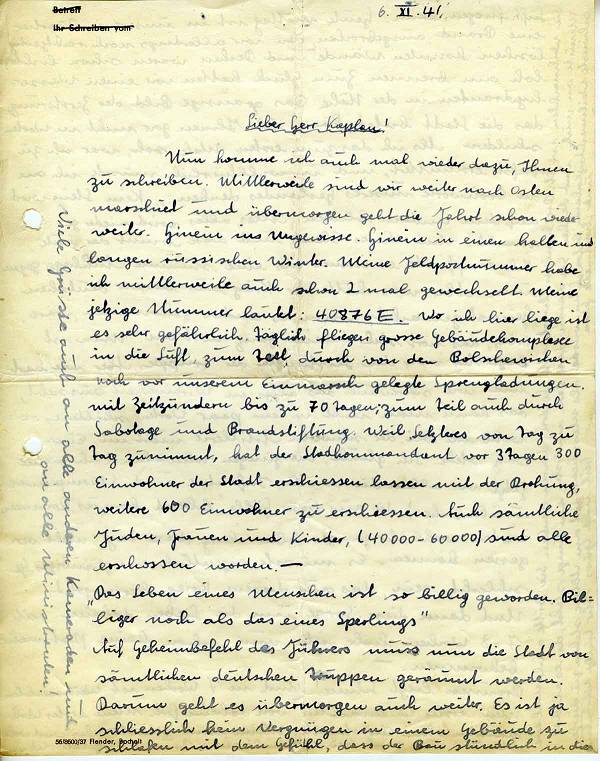 Betreff
Ihr Schreiben vom
6. XI. 41.
Lieber Herr Kaplan!
Nun komme ich auch mal wieder dazu, Ihnen
zu schreiben. Mittlerweile sind wir weiter nach Osten
marschiert und übermorgen geht die Fahrt schon wieder
weiter. Hinein ins Ungewisse. Hinein in einen kalten und
langen russischen Winter. Meine Feldpostnummer habe
ich mittlerweile auch schon 2 mal gewechselt. Meine
jetzige Nummer lautet: 40876 E. Wo ich hier liege ist
es sehr gefährlich. Täglich fliegen grosse Gebäudekomplexe
in die Luft, zum Teil durch von den Bolschewisten
noch vor unserem Einmarsch gelegte Sprengladungen
mit Zeitzündern bis zu 70 Tagen; zum Teil auch durch
Sabotage und Brandstiftung. Weil Letzteres von Tag zu
Tag zunimmt, hat der Stadtkommandant vor 3 Tagen 300
Einwohner der Stadt erschiessen lassen mit der Drohung,
weitere 600 Einwohner zu erschiessen. Auch sämtliche
Juden, Frauen und Kinder, (40000-60000) sind alle
erschossen worden.—
"Das Leben eines Menschen ist so billig geworden. Bil=
liger noch als das eines Sperlings"
Auf Geheimbefehl des Führers muss nun die Stadt von
sämtlichen deutschen Truppen geräumt werden.
Darum geht es übermorgen auch weiter. Es ist ja
schliesslich kein Vergnügen in einem Gebäude zu
schlafen mit dem Gefühl, dass der Bau stündlich in die
Viele Grüsse auch an alle anderen Kameraden und
an alle Ministranten!
56/8600/37 Hender, Bocholt